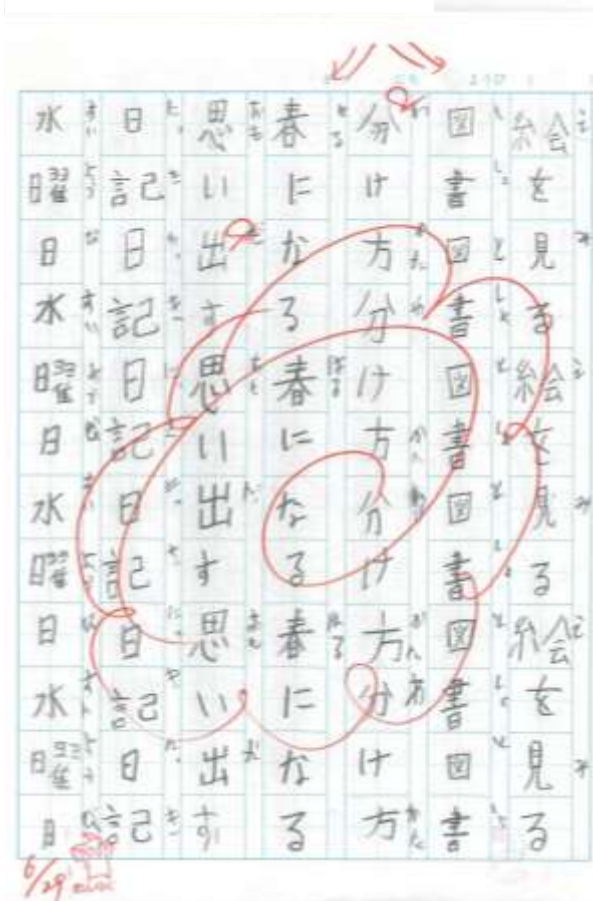 絵を見る絵を見る絵を見る
図書図書図書図書図書図書
分け方分け方分け方分け方
春になる春になる春になる
思い出す思い出す思い出す
日記日記日記日記日記日記
水曜日水曜日水曜日水曜日
6/29